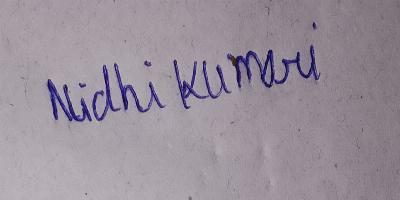 Nidhi Kumari